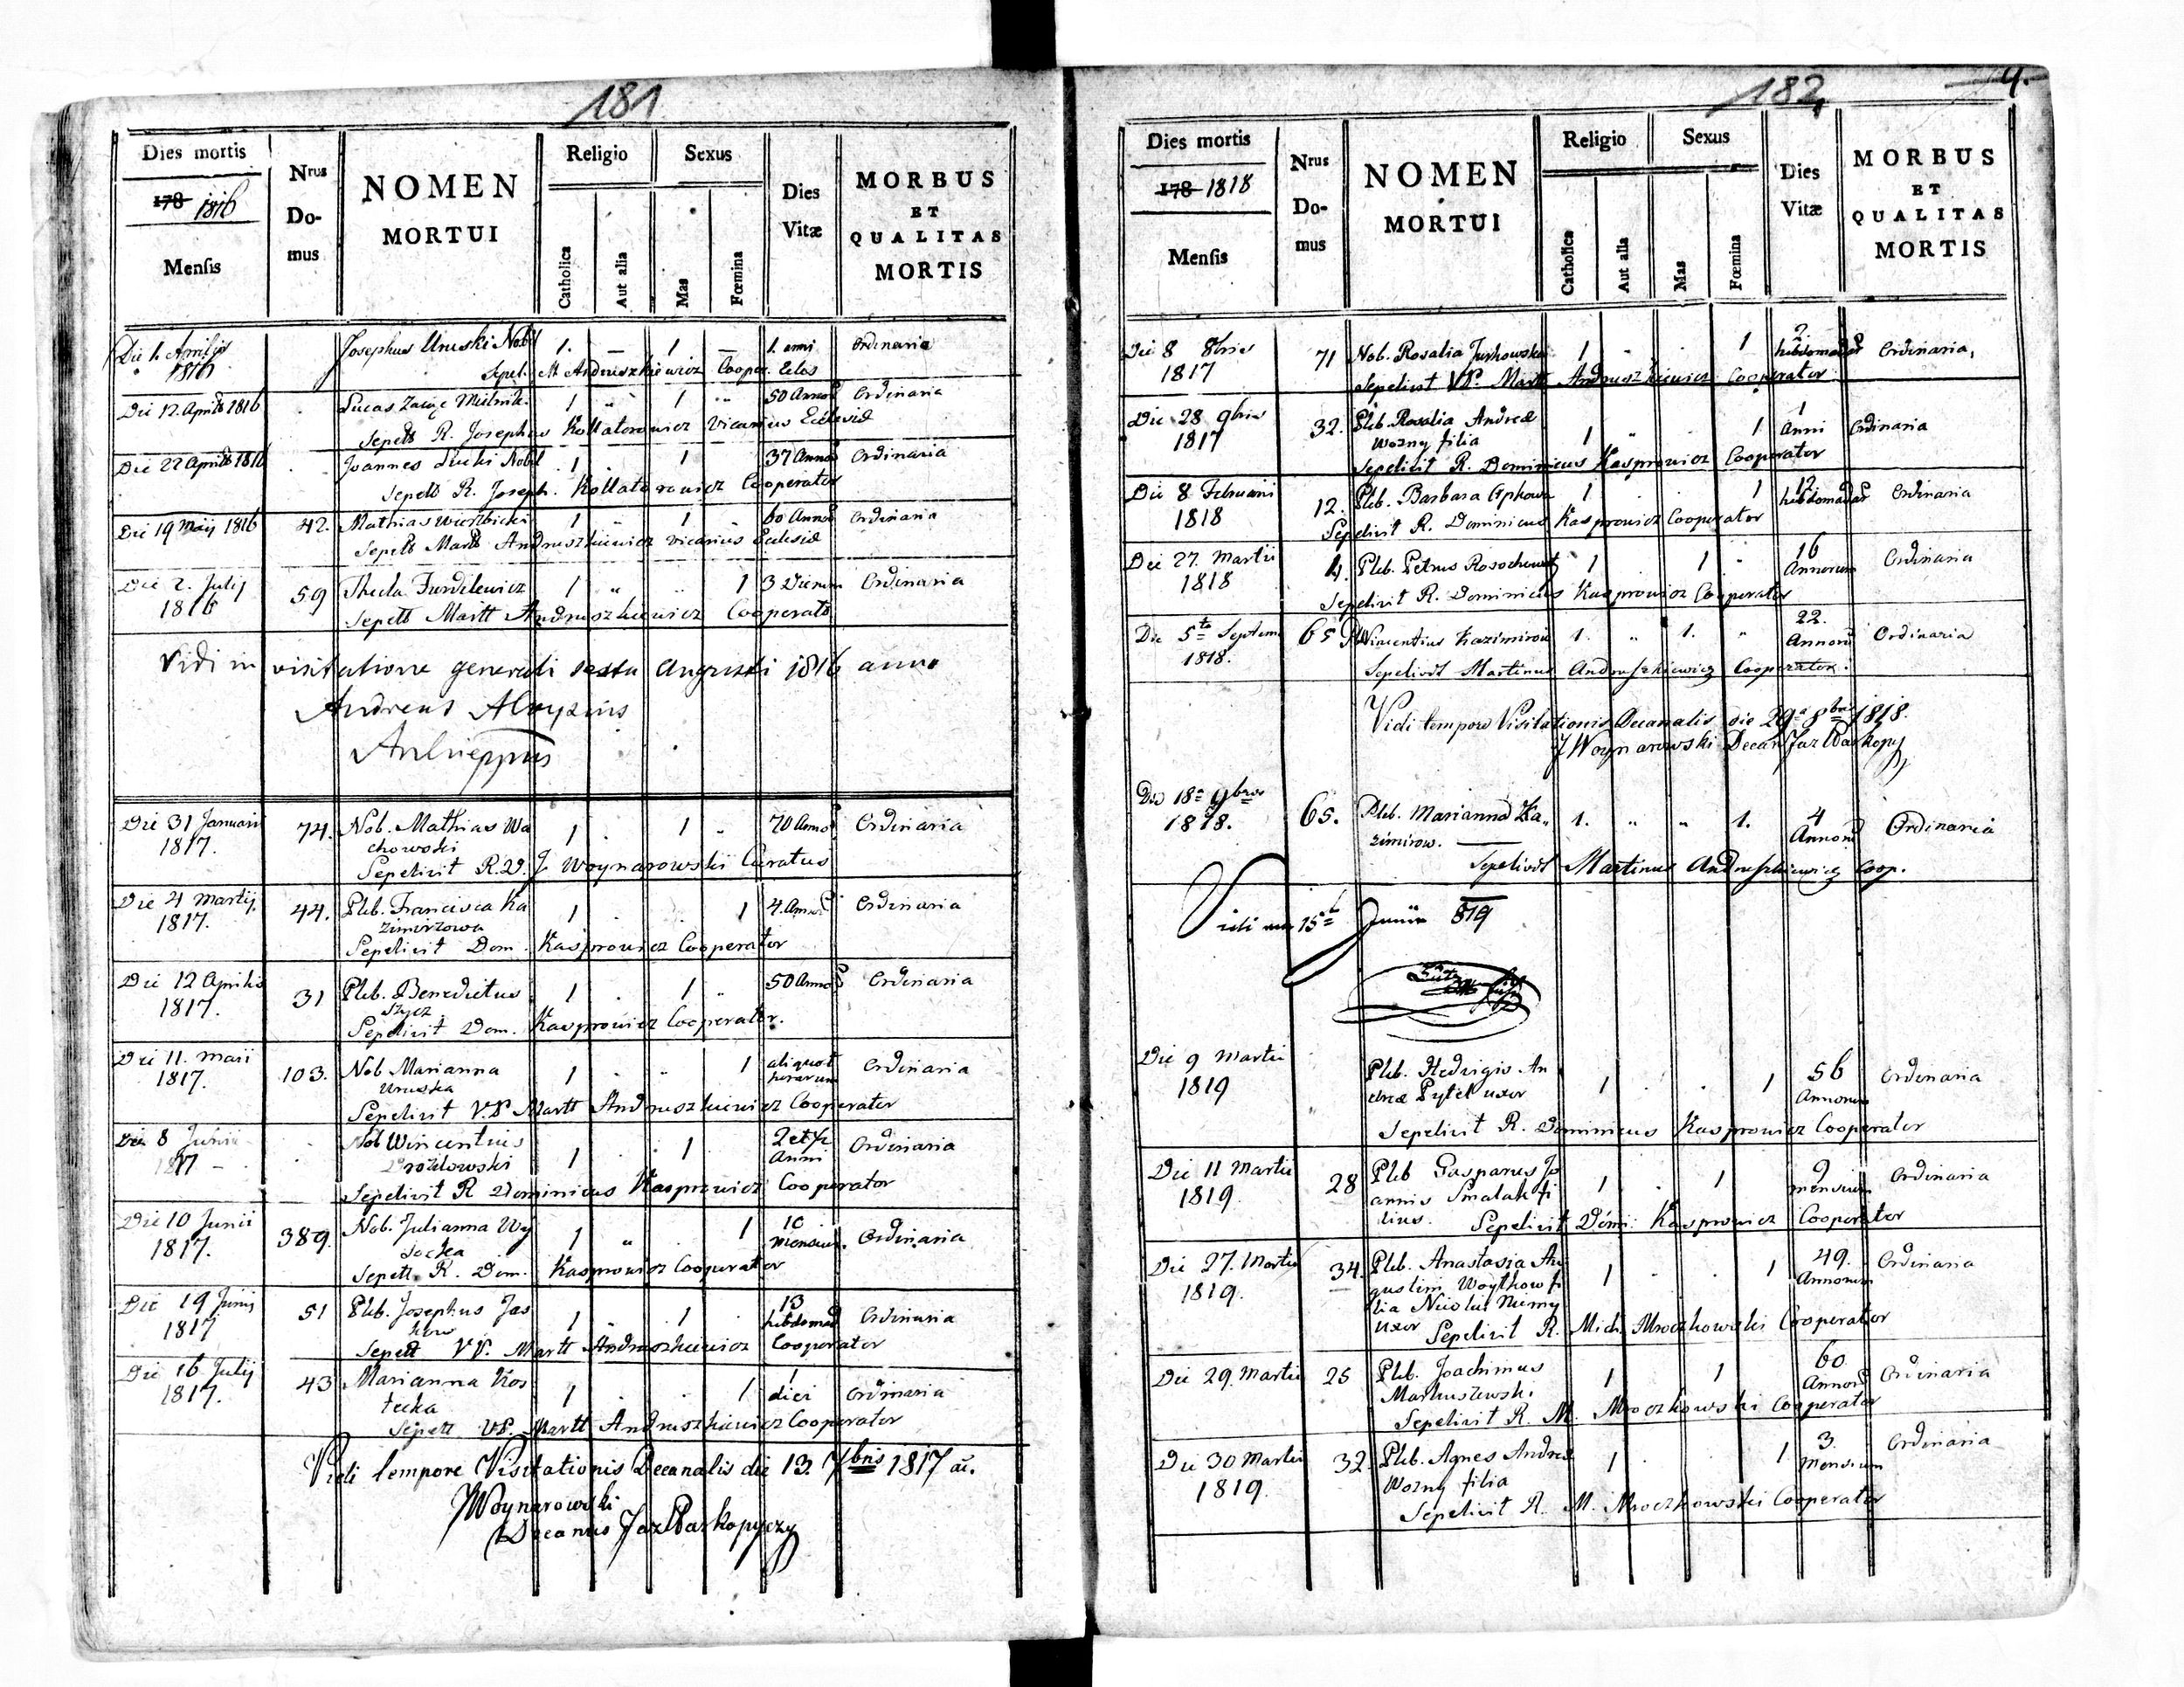 181
Dies mortis
178 1816
Mensis
Nrus Do- mus
NOMEN MORTUI
Religio
Catholica
Aut alia
Sexus
Mas
Fœmina
Dies Vitæ
MORBUS ET QUALITAS MORTIS
Die 1. Aprilis Josephus Uruski Nobil 1. — 1 — 1. anni Ordinaria
1816 Sepel. M Andruszkiewicz Cooper. Ecl͞s
Die 12. Aprilis 1816 Lucas 1 „ 1 „ 50 Annor Ordinaria
Sepelt R. Josephus Kollatorowicz Vicarius Ecclesiæ
Die 22 Aprilis 1816 Joannes Nobil 1 . 1 37 Annor Ordinaria
Sepelt R. Joseph. Kollatorowicz Cooperator
Die 19 Maij 1816 42. Mathias Wierzbicki 1 „ 1 „ 60 Annor Ordinaria
Sepelt Martt Andruszkiewicz Vicarius Ecclesiæ
Die 2. Julij 59 Thecla Fundilewicz 1 „ „ 1 3 Dierum Ordinaria
1816 Sepelt Martt Andruszkiewicz Cooperator
Vidi in visitatione generali sexta Augusti 1816 anno
Andreas Aloysius
Archieppus
Die 31 Januarii 74. Nob. Mathias Wa 1 1 „ 70 Annor Ordinaria
1817. chowski
Sepelivit R.D. J Woynarowski Curatus
Die 4 Martij. 44. Pleb. Francisca Ka 1 . . 1 4. Annor Ordinaria
1817. zimirzowa
Sepelivit Dom. Kasprowicz Cooperator
Die 12 Aprilis 31 Pleb. Benedictus 1 . 1 „ 50 Annor Ordinaria
1817. Szycz
Sepelivit Dom. Kasprowicz Cooperator.
Die 11. Maii 103. Nob Marianna 1 . „ 1 aliquot horarum Ordinaria
1817. Uruska
Sepelivit V.P. Martt Andruszkiewicz Cooperator
Die 8 Junii . Nob Wincentius 1 . 1 2 et ½ Anni Ordinaria
1817 – Drozdowski
Sepelivit R Dominicus Kasprowicz Cooperator
Die 10 Junii 389. Nob. Julianna Wy 1 „ . 1 10 Mensium. Ordinaria
1817. socka
Sepelt. R. Dom. Kasprowicz Cooperator
Die 19 Junij 51 Pleb. Josephus Jas 1 „ 1 . 13 hebdomad Ordinaria
1817 kow
Sepelt VP. Martt Andruszkiewicz Cooperator
Die 16 Julij 43 Marianna Kos 1 . . 1 1 diei Ordinaria
1817. tecka
Sepelt VP. Martt Andruszkiewicz Cooperator
Vidi tempore Visitationis Decanalis die 13. 7bris 1817 a͞i.
JWoynarowski
Decanus Jaz
182
4.
Dies mortis
178 1818
Mensis
Nrus Do- mus
NOMEN MORTUI
Religio
Catholica
Aut alia
Sexus
Mas
Fœmina
Dies Vitæ
MORBUS ET QUALITAS MORTIS
Die 8 8bris 71 Nob. Rosalia Jurkowska 1 . . 1 2 hebdomadar Ordinaria,
1817 Sepelivit VP. Martt Andruszkiewicz Cooperator
Die 28 9bris 32. Pleb. Rosalia Andreæ 1 „ 1 1 Anni Ordinaria
1817 Wozny filia
Sepelivit R. Dominicus Kasprowicz Cooperator
Die 8 Februarii 12. Pleb. Barbara 1 . . 1 12 hebdomadar Ordinaria
1818 Sepelivit R. Dominicus Kasprowicz Cooperator
Die 27. Martii 4. Pleb. Petrus 1 1 „ 16 Annorum Ordinaria
1818 Sepelivit R. Dominicus Kasprowicz Cooperator
Die 5ta Septem 65 Wincentius Kazimirow 1. „ 1. „ 22. Annorum Ordinaria
1818. Sepelivit Martinus Andruszkiewicz Cooperator.
Vidi tempore Visitationis Decanalis die 29a 8bris 1818.
JWoynarowski Decan Jaz
Die 18a 9bris 65. Pleb. Marianna Ka„ 1. „ „ 1. 4 Annorum Ordinaria
1818. zimirow.
Sepelivit Martinus Andruszkiewicz Coop.
Vidi 15t Junii 819
Die 9 Martii Pleb. Hedvigis An 1 . . 1 56 Annorum Ordinaria
1819 dreæ Pytel uxor
Sepelivit R. Dominicus Kasprowicz Cooperator
Die 11 Martii 28 Pleb Gasparus Jo 1 . 1 9 mensium Ordinaria
1819. annis Smalak fi
lius. Sepelivit Domi: Kasprowicz Cooperator
Die 27. Martii 34. Pleb. Anastasia Au 1 . . 1 49. Annorum Ordinaria
1819. gustini Woytkow fi
lia Nicolai Niemy
uxor Sepelivit R. Mich. Mroczkowski Cooperator
Die 29. Martii 25 Pleb. Joachimus 1 1 60 Annor Ordinaria
Markuszewski
Sepelivit R. M. Mroczkowski Cooperator
Die 30 Martii 32. Pleb. Agnes Andreæ 1 . 1 3. Mensium Ordinaria
1819. Wozny filia
Sepelivit R. M. Mroczkowski Cooperator